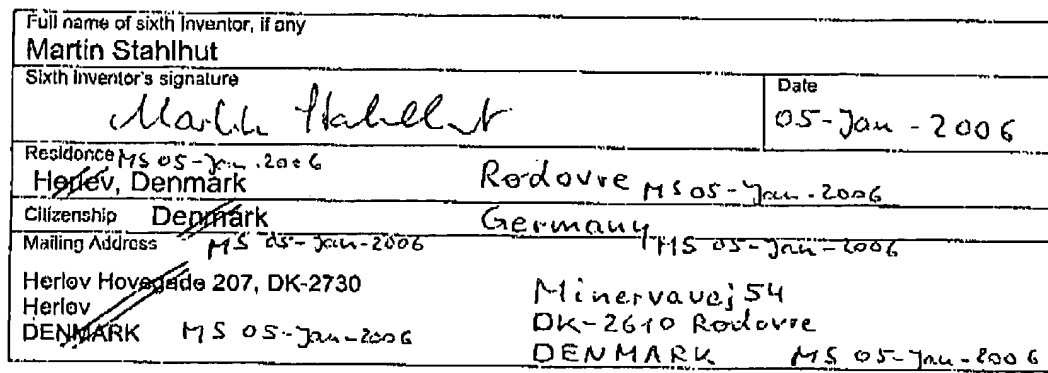 Full name of sixth Inventor, if any
Martin Stahlhut
Sixth Inventor's signature
Date
Martin Stahlhut
05-Jan-2006
Residence MS 05-Jan.2006
Herlev, Denmark Rodovre MS 05-Jan-2006
Citizenship Denmark Germany
Mailing Address MS 05-Jan-2006 MS 05-Jan-2006
Herlev Hovegade 207, DK-2730
Herlev
DENMARK MS 05-Jan-2006
Minervavej 54
DK-2610 Rodovre
DENMARK MS 05-Jan-2006